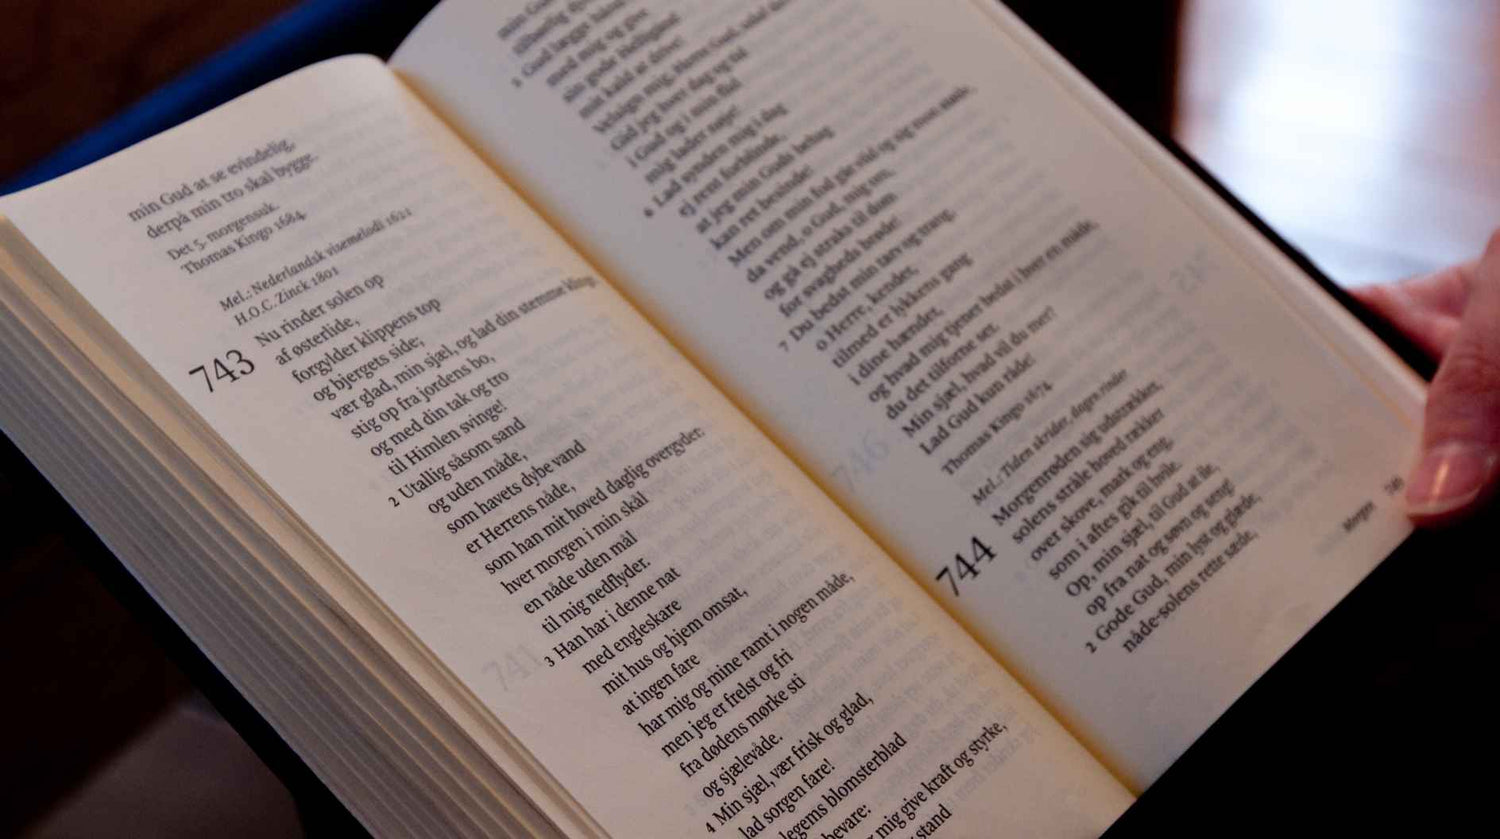 min Gud at se evindelig,
derpå min tro skal bygge.
Det 5. morgensuk.
Thomas Kingo 1684.
Mel.: Nederlandsk visemelodi 1621
H.O.C. Zinck 1801
743
Nu rinder solen op
af østerlide,
forgylder klippens top
og bjergets side;
vær glad, min sjæl, og lad din stemme kling
stig op fra jordens bo,
og med din tak og tro
til Himlen svinge!
2 Utallig såsom sand
og uden måde,
som havets dybe vand
er Herrens nåde,
som han mit hoved daglig overgyder:
hver morgen i min skål
en nåde uden mål
til mig nedflyder.
3 Han har i denne nat
med engleskare
mit hus og hjem omsat,
at ingen fare
har mig og mine ramt i nogen måde,
men jeg er frelst og fri
fra dødens mørke sti
og sjælevåde.
4 Min sjæl, vær frisk og glad,
lad sorgen fare!
legems blomsterblad
bevare:
mig give kraft og styrke,
stand
min Gud
Gud lægge
med mig og give
mit kald at drive!
Velsign mig, Herre Gud,
Gud jeg hver dag og tid
5 Gud og i min flid
mig lader nøje!
6 Lad synden mig i dag
ej rent forblinde,
at jeg min Guds behag
kan ret besinde!
Men om min fod går vild og sig mon støde,
da vend, o Gud, mig om,
og gå ej straks til dom
for svagheds brøde!
7 Du bedst min tarv og trang,
o Herre, kender,
tilmed er lykkens gang
i dine hænder,
og hvad mig tjener bedst i hver en måde,
du det tilforne ser.
Min sjæl, hvad vil du mer?
Lad Gud kun råde!
Thomas Kingo 1674.
Mel.: Tiden skrider, dagen rinder
744
Morgenrøden sig udstrækker,
solens stråle hoved rækker
over skove, mark og eng,
som i aftes gik til hvile.
Op, min sjæl, til Gud at ile,
op fra nat og søvn og seng!
2 Gode Gud, min lyst og glæde,
nåde-solens rette sæde,
Morgen